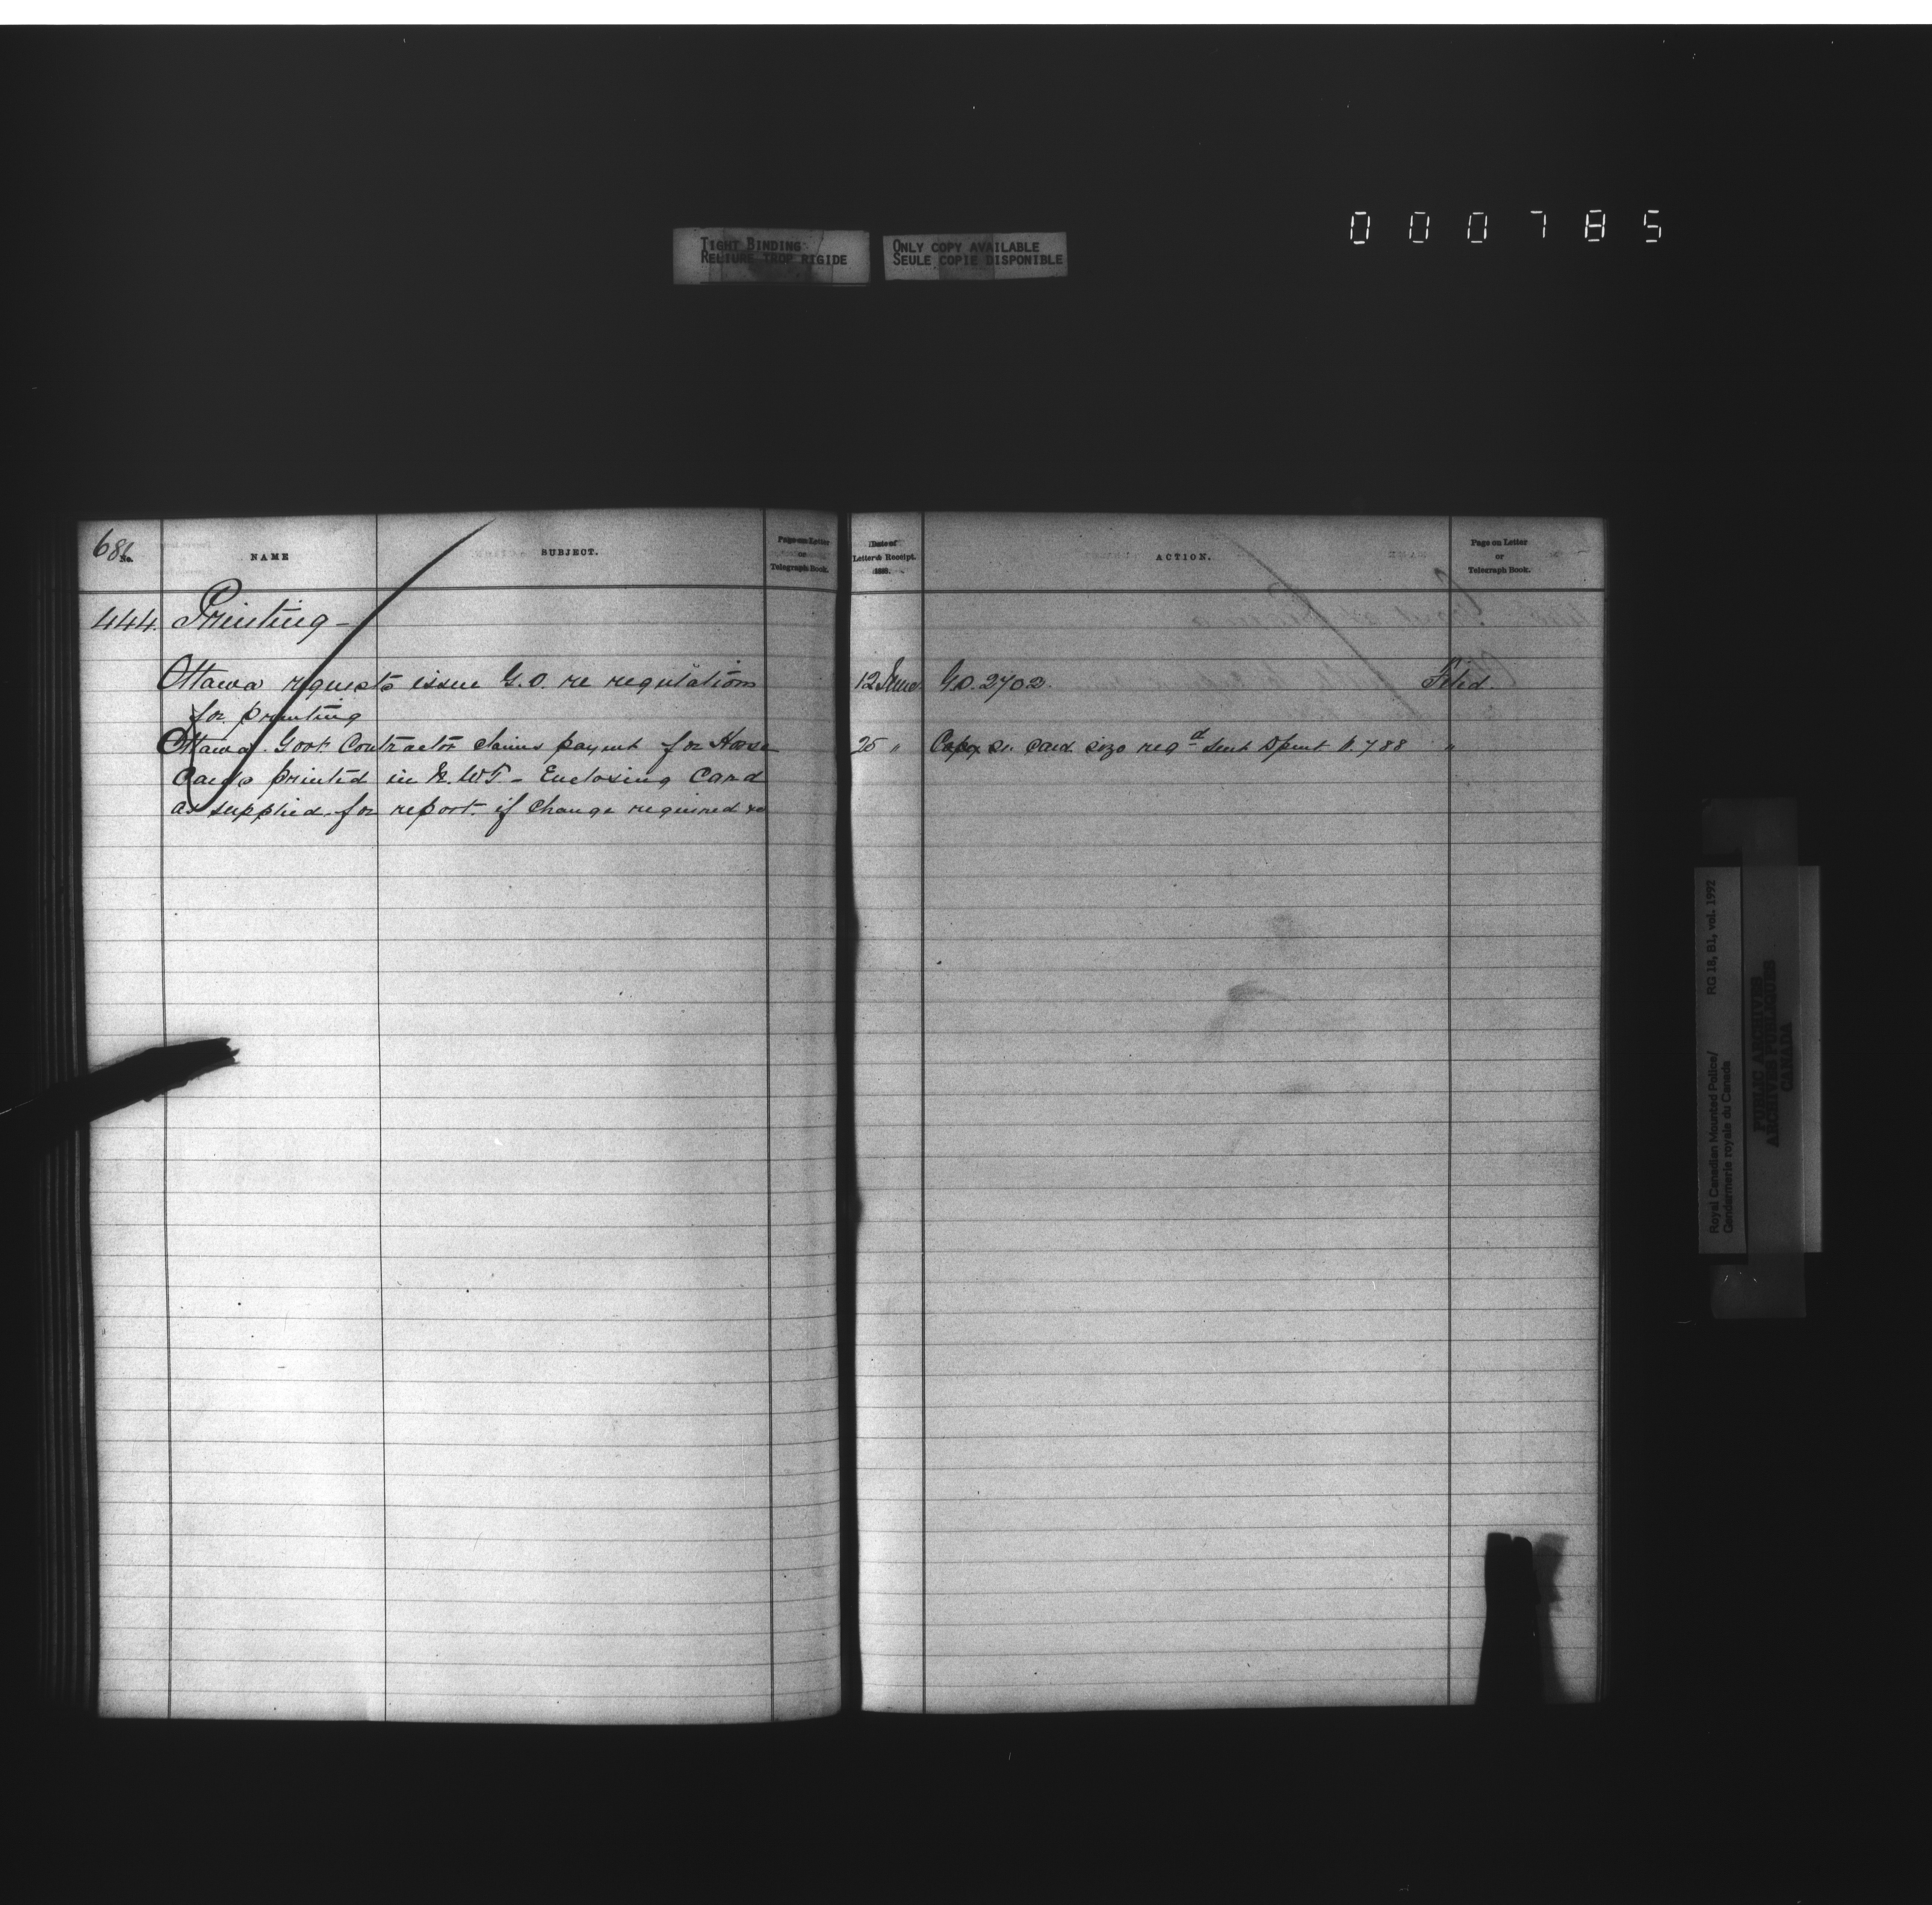 000785
TIGHT BINDING
RELIURE TROP RIGIDE
ONLY COPY AVAILABLE
SEULE COPIE DISPONIBLE
No.
NAME
SUBJECT.
Page on Letter
or
Telegraph Book.
Date of
Letter & Receipt.
188 .
ACTION.
Page on Letter
or
Telegraph Book.
444. Printing -
Ottawa requests issue G.O. re regulations
for printing
12 June G.O. 2702 Filed.
Ottawa. Govt. Contractor claims payment for Horse
Cards printed in N.W.T. - Enclosing Card
as supplied for report. if change required
25 " card size reqd sent p. 788 "
Royal Canadian Mounted Police/
Gendarmerie royale du Canada
RG 18, B1, vol. 1992
PUBLIC ARCHIVES
ARCHIVES PUBLIQUES
CANADA